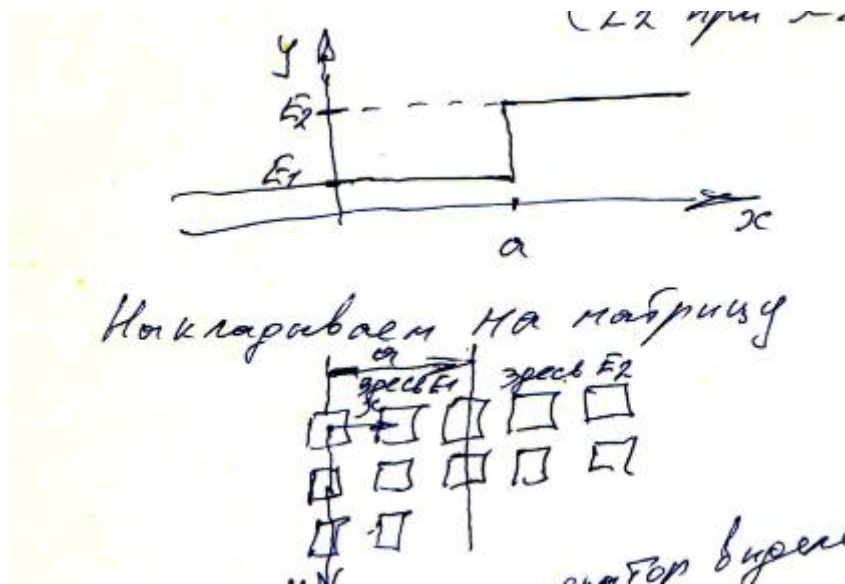 (E2 при x
y
E2
E1
x
a
Накладываем на матрицу
a
здесь E1 здесь E2
x